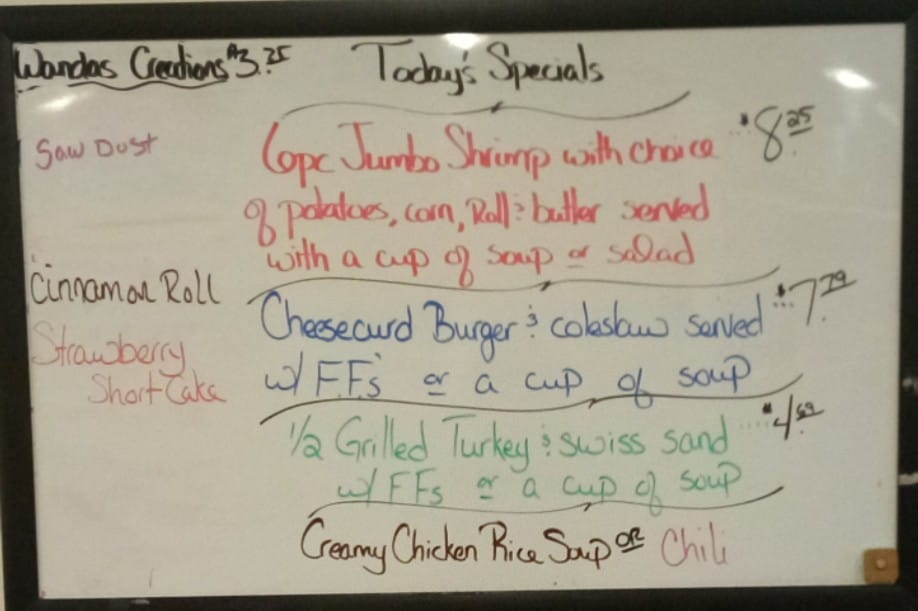 Wandas Creations $3.25
Today's Specials
Saw Dust
Cinnamon Roll
Strawberry
Short Cake
6pc Jumbo Shrimp with choice $8.25
of potatoes, corn, Roll & butter served
with a cup of soup or salad
Cheesecurd Burger & coleslaw served $7.79
w/ F.F.'s or a cup of soup
1/2 Grilled Turkey & swiss sand $4.69
w/ FFs or a cup of soup
Creamy Chicken Rice Soup OR Chili